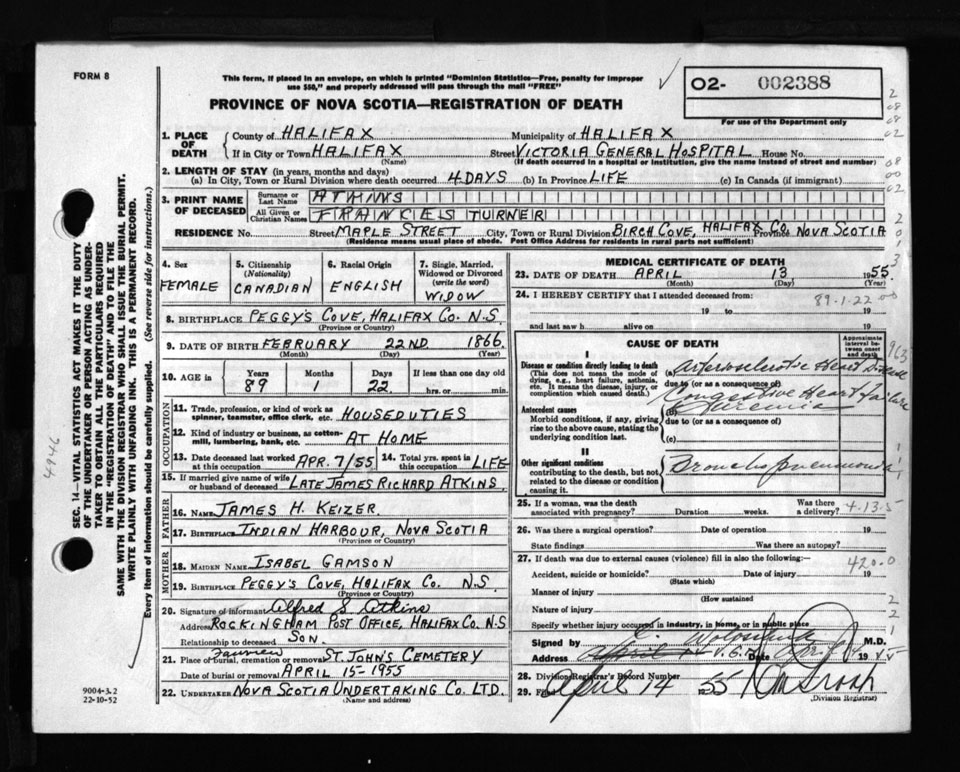 FORM 8
This form, if placed in an envelope, on which is printed "Dominion Statistics—Free, penalty for improper
use $50," and properly addressed will pass through the mail "FREE"
O2- 002388
For use of the Department only
PROVINCE OF NOVA SCOTIA—REGISTRATION OF DEATH
1. PLACE OF DEATH { County of HALIFAX Municipality of HALIFAX
If in City or Town HALIFAX Street VICTORIA GENERAL HOSPITAL House No.
(Name) (If death occurred in a hospital or institution, give the name instead of street and number)
2. LENGTH OF STAY (in years, months and days)
(a) In City, Town or Rural Division where death occurred 4 DAYS (b) In Province LIFE (c) In Canada (if immigrant)
3. PRINT NAME OF DECEASED { Surname or Last Name ATKINS
All Given or Christian Names FRANCES TURNER
RESIDENCE No. Street MAPLE STREET City, Town or Rural Division BIRCH COVE, HALIFAX CO. Province NOVA SCOTIA
(Residence means usual place of abode. Post Office Address for residents in rural parts not sufficient)
4. Sex FEMALE
5. Citizenship (Nationality) CANADIAN
6. Racial Origin ENGLISH
7. Single, Married, Widowed or Divorced (write the word) WIDOW
8. BIRTHPLACE PEGGY'S COVE, HALIFAX CO. N.S.
(Province or Country)
9. DATE OF BIRTH FEBRUARY 22ND 1866.
(Month) (Day) (Year)
10. AGE in { Years 89 Months 1 Days 22 If less than one day old hrs. or min.
OCCUPATION
11. Trade, profession, or kind of work as spinner, teamster, office clerk, etc. HOUSEDUTIES
12. Kind of industry or business, as cotton-mill, lumbering, bank, etc. AT HOME
13. Date deceased last worked at this occupation APR. 7/55
14. Total yrs. spent in this occupation LIFE
15. If married give name of wife or husband of deceased LATE JAMES RICHARD ATKINS
FATHER
16. NAME JAMES H. KEIZER.
17. BIRTHPLACE INDIAN HARBOUR, NOVA SCOTIA
(Province or Country)
MOTHER
18. MAIDEN NAME ISABEL GAMSON
19. BIRTHPLACE PEGGY'S COVE, HALIFAX CO. N.S
(Province or Country)
20. Signature of informant Alfred S Atkins
Address ROCKINGHAM POST OFFICE, HALIFAX CO. N.S
Relationship to deceased SON.
Fairview
21. Place of burial, cremation or removal ST. JOHN'S CEMETERY
Date of burial or removal APRIL 15-1955
22. UNDERTAKER NOVA SCOTIA UNDERTAKING CO. LTD.
(Name and address)
MEDICAL CERTIFICATE OF DEATH
23. DATE OF DEATH APRIL 13 1955.
(Month) (Day) (Year)
24. I HEREBY CERTIFY that I attended deceased from:
89-1-22
19 to 19
and last saw h alive on 19
CAUSE OF DEATH
Approximate interval between onset and death
I
Disease or condition directly leading to death
(This does not mean the mode of dying, e.g., heart failure, asthenia, etc. It means the disease, injury, or complication which caused death.)
(a) Arteriosclerotic Heart Disease
due to (or as a consequence of)
Congestive Heart Failure
Antecedent causes
Morbid conditions, if any, giving rise to the above cause, stating the underlying condition last.
(b) Uremia
due to (or as a consequence of)
(c)
II
Other significant conditions
contributing to the death, but not related to the disease or condition causing it.
Bronchopneumonia
25. If a woman, was the death associated with pregnancy? Duration weeks. Was there a delivery?
4-13-5
26. Was there a surgical operation? Date of operation 19
State findings Was there an autopsy?
27. If death was due to external causes (violence) fill in also the following:
420.0
Accident, suicide or homicide? Date of injury 19
(State which)
Manner of injury
(How sustained
Nature of injury
Specify whether injury occurred in industry, in home, or in public place
Signed by M.D.
Address Date 19
28. Division Registrar's Record Number
29. Filed April 14 1955
(Division Registrar)
SEC. 14—VITAL STATISTICS ACT MAKES IT THE DUTY
OF THE UNDERTAKER OR PERSON ACTING AS UNDER-
TAKER TO OBTAIN ALL THE PARTICULARS REQUIRED
IN THE "REGISTRATION OF DEATH" AND TO FILE THE
SAME WITH THE DIVISION REGISTRAR WHO SHALL ISSUE THE BURIAL PERMIT.
WRITE PLAINLY WITH UNFADING INK. THIS IS A PERMANENT RECORD.
Every item of information should be carefully supplied. (See reverse side for instructions.)
4946
9004-3.2
22-10-52